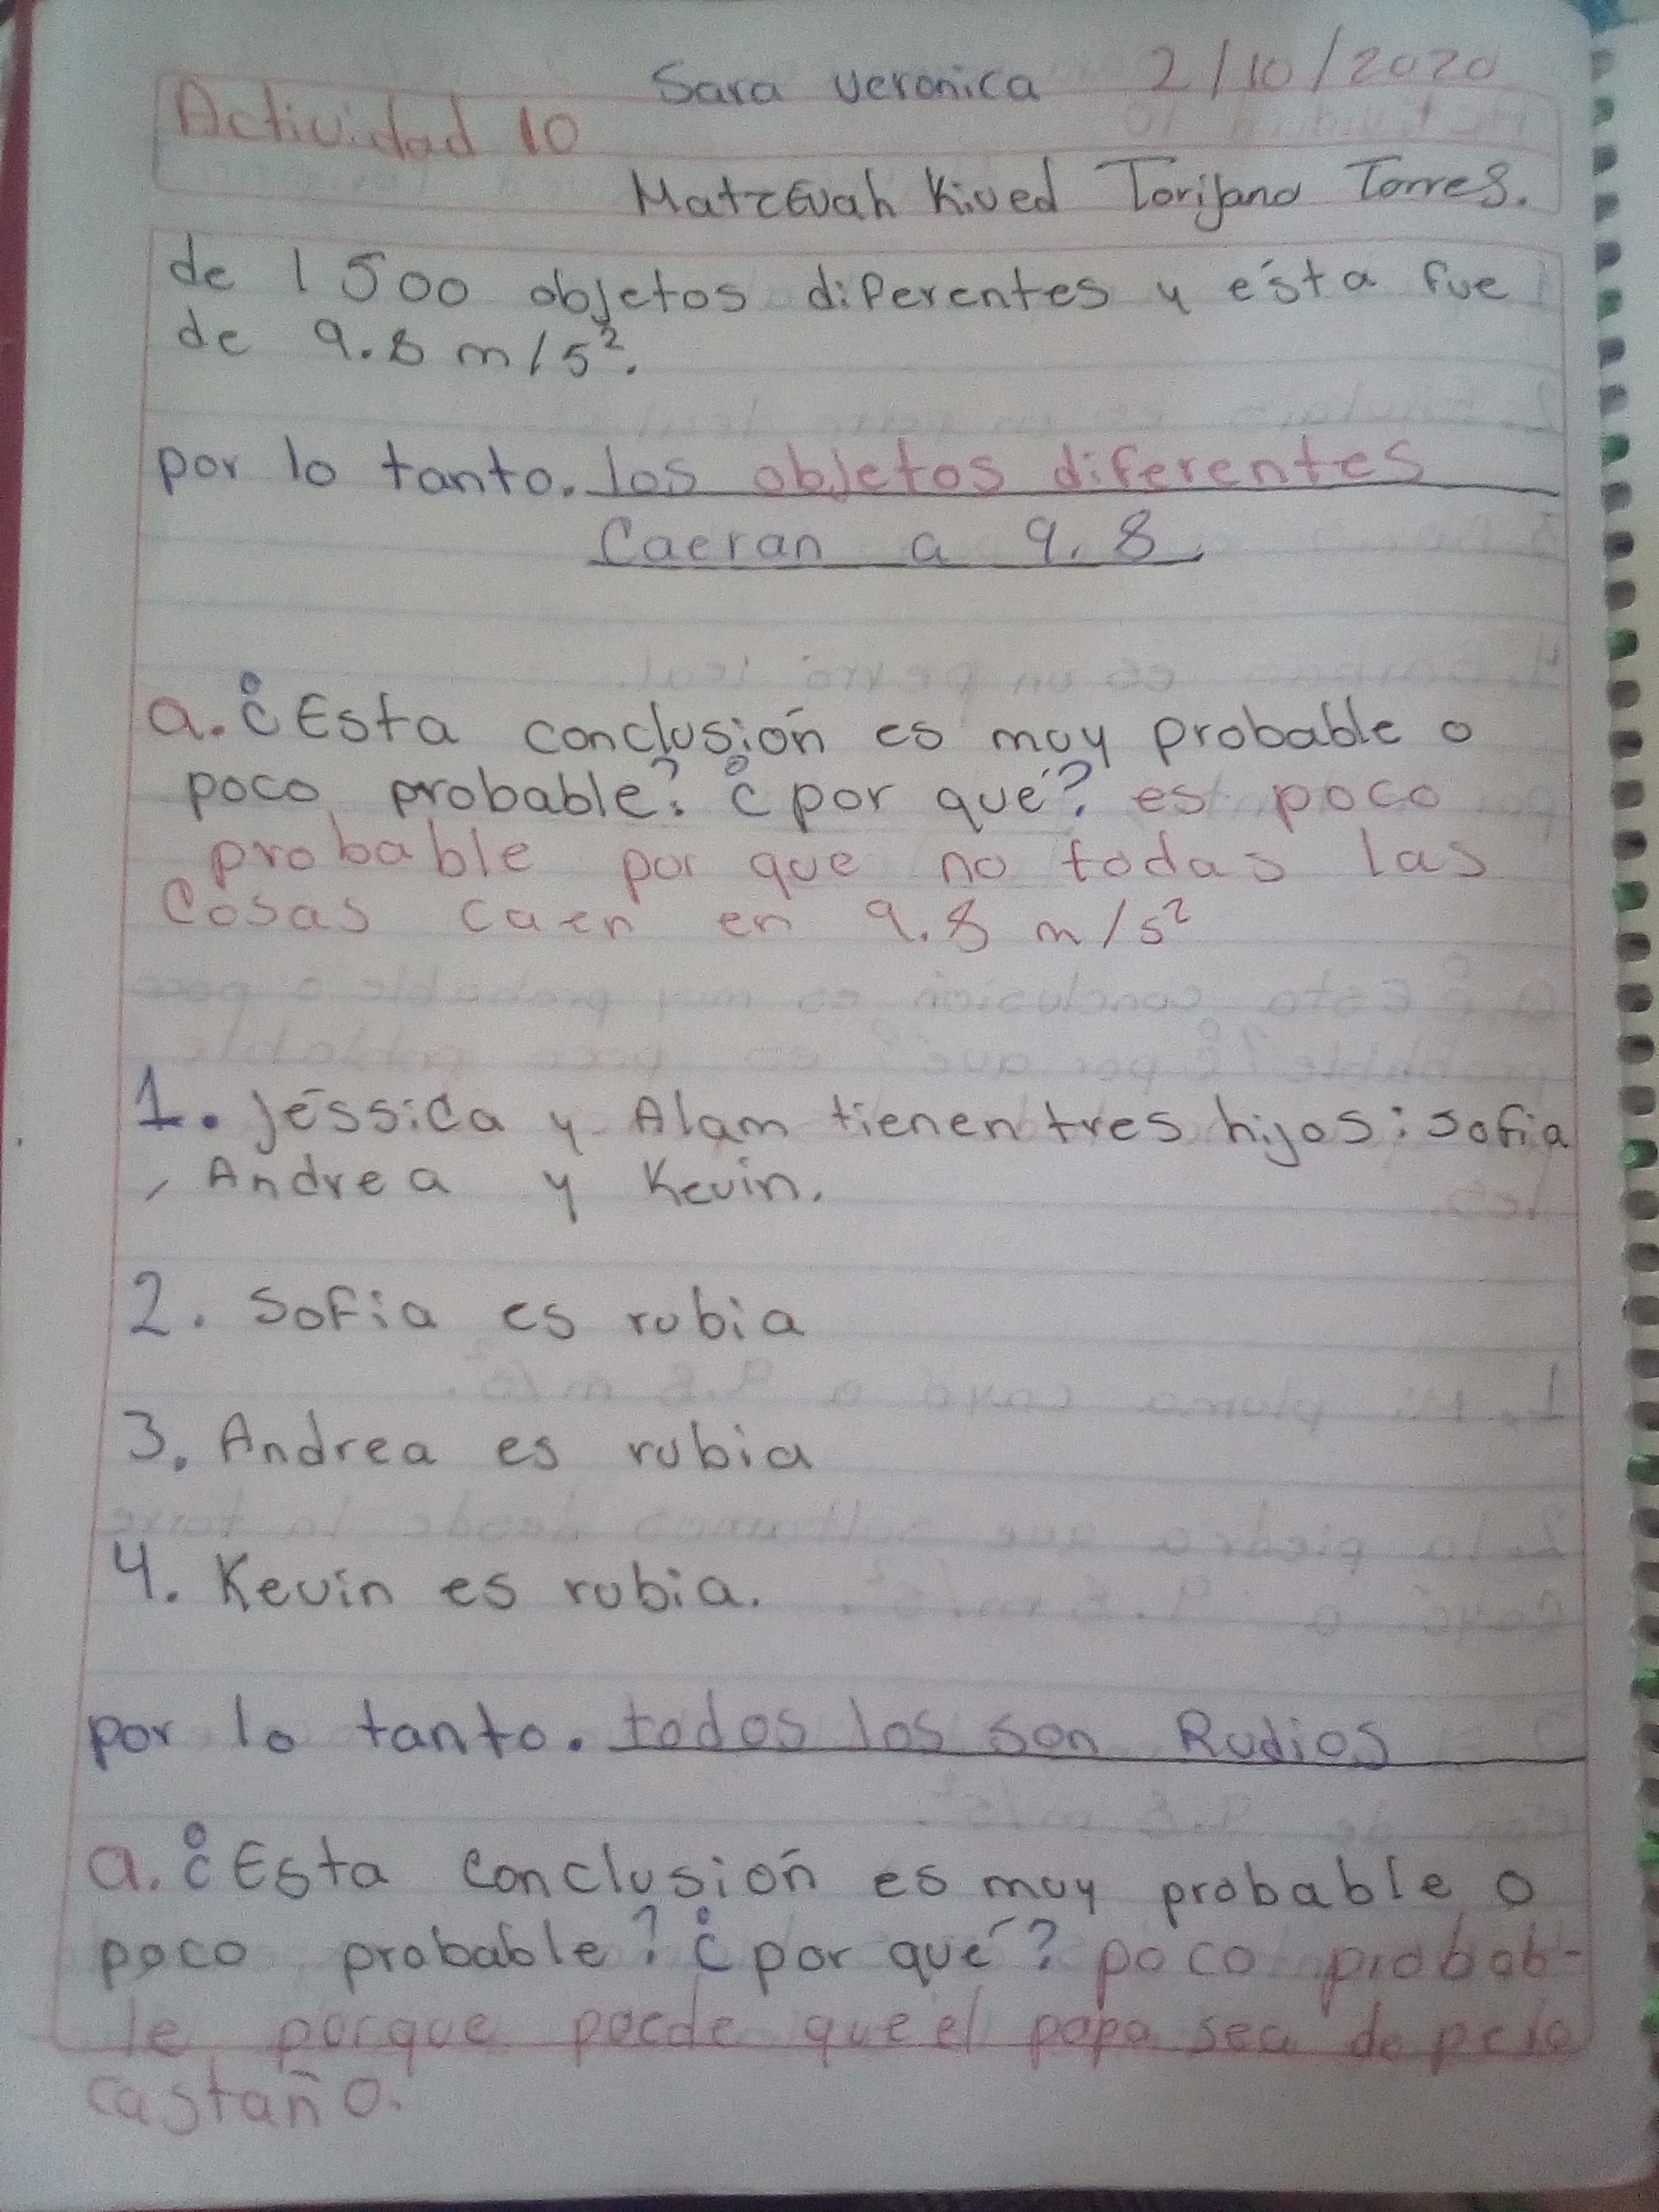 Sara Veronica 2/10/2020
Actividad 10
Matzevah Kived Torijano Torres.
de 1500 objetos diferentes y ésta fue
de 9.8 m/s².
por lo tanto. los objetos diferentes
Caeran a 9.8
a. ¿Esta conclusión es muy probable o
poco probable? ¿por qué? es poco
probable por que no todas las
Cosas caen en 9.8 m/s²
1. Jéssica y Alam tienen tres hijos: Sofia
, Andrea y Kevin.
2. Sofia es rubia
3. Andrea es rubia
4. Kevin es rubia.
por lo tanto. todos los son Rudios
a. ¿Esta conclusión es muy probable o
poco probable? ¿por qué? poco probab-
le porque puede que el papa sea de pelo
castaño.